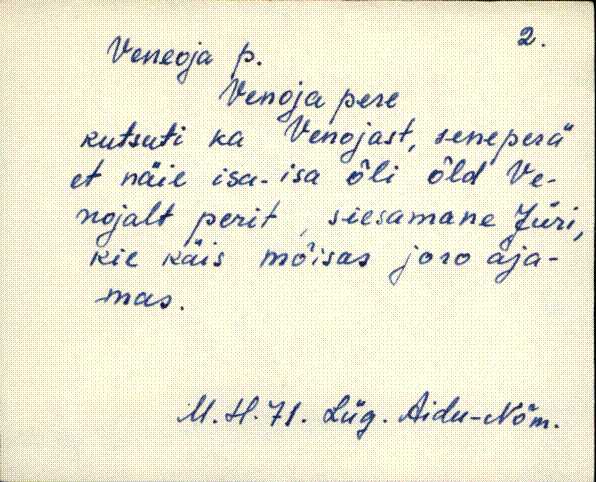 2.
Veneoja p.
Venoja pere
kutsuti ka Venojast, seneperä
et näie isa-isa õli õld Ve-
nojalt perit, siesamane Jüri,
kie käis mõisas joro aja-
mas.
M. H. 71. Lüg. Aidu-Nõm.